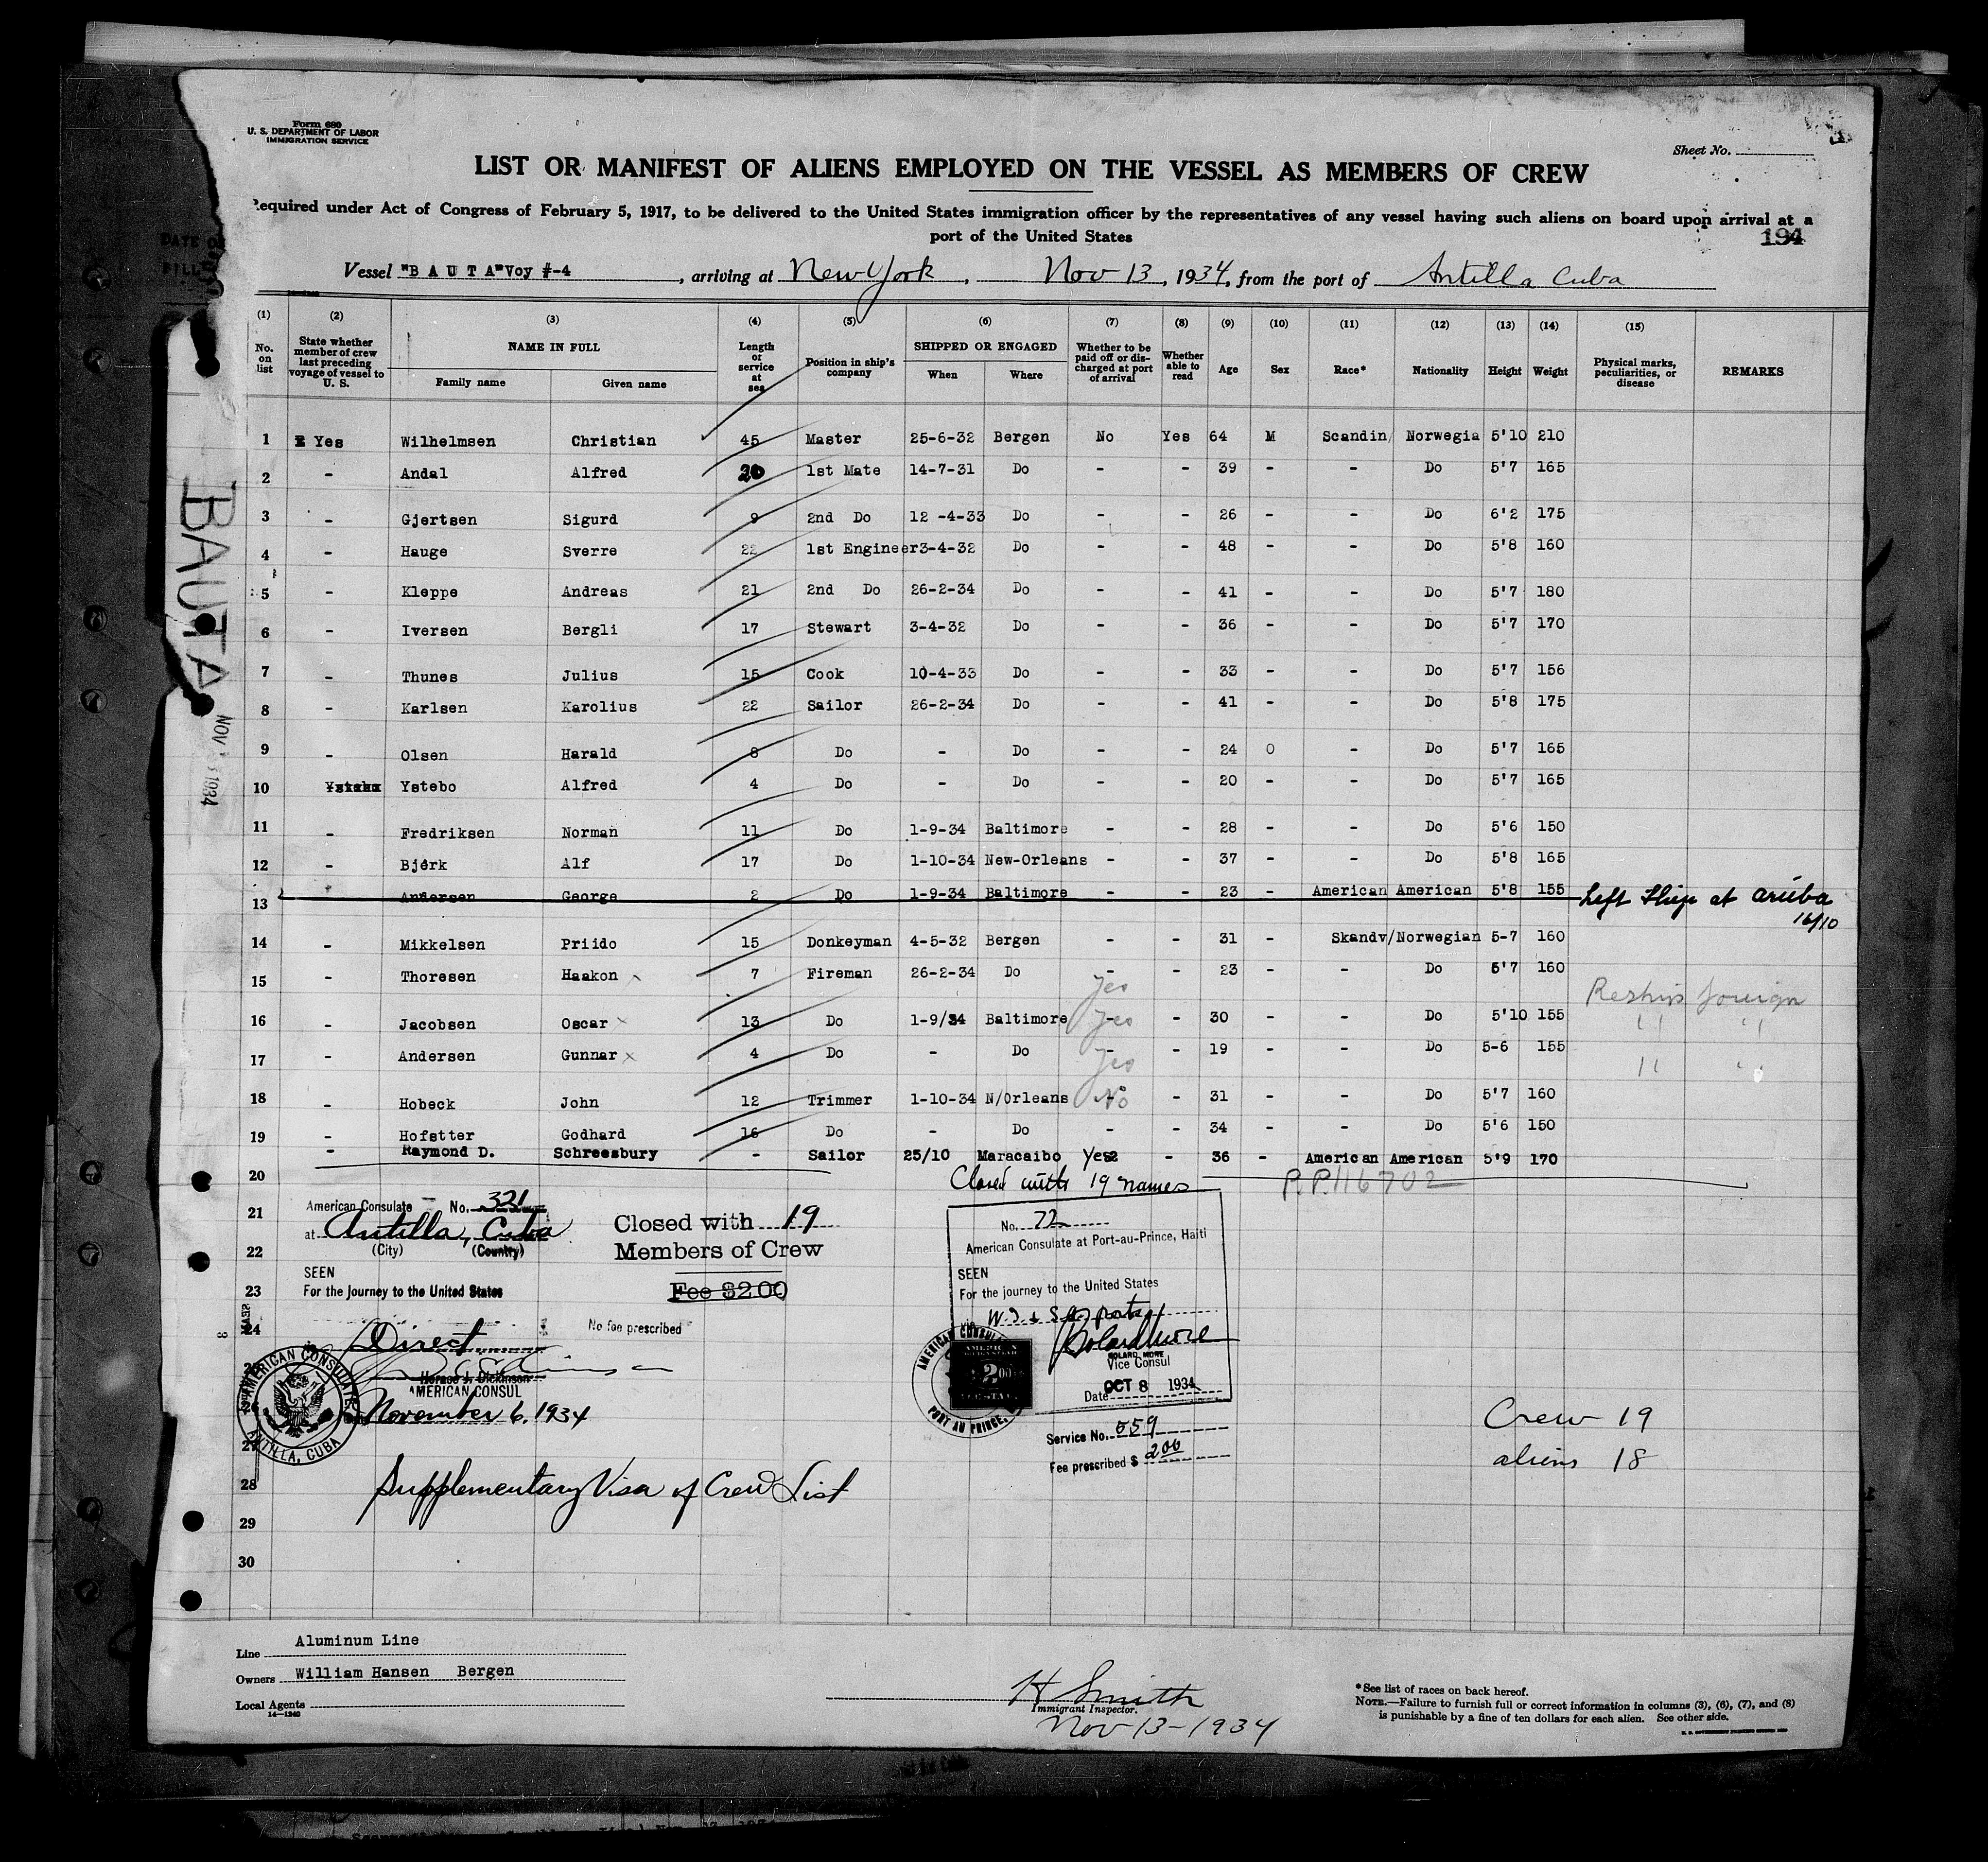 Form 680
U. S. DEPARTMENT OF LABOR
IMMIGRATION SERVICE
Sheet No.
LIST OR MANIFEST OF ALIENS EMPLOYED ON THE VESSEL AS MEMBERS OF CREW
Required under Act of Congress of February 5, 1917, to be delivered to the United States immigration officer by the representatives of any vessel having such aliens on board upon arrival at a
port of the United States
194
Vessel "B A U T A" Voy #-4, arriving at New York, Nov 13, 1934, from the port of Antilla Cuba
(1) (2) (3) (4) (5) (6) (7) (8) (9) (10) (11) (12) (13) (14) (15)
No. on list
State whether member of crew last preceding voyage of vessel to U. S.
NAME IN FULL
Family name Given name
Length or service at sea
Position in ship's company
SHIPPED OR ENGAGED
When Where
Whether to be paid off or discharged at port of arrival
Whether able to read
Age Sex Race* Nationality Height Weight
Physical marks, peculiarities, or disease
REMARKS
1 Yes Wilhelmsen Christian 45 Master 25-6-32 Bergen No Yes 64 M Scandin/ Norwegia 5'10 210
2 - Andal Alfred 20 1st Mate 14-7-31 Do - - 39 - - Do 5'7 165
3 - Gjertsen Sigurd 9 2nd Do 12 -4-33 Do - - 26 - - Do 6'2 175
4 - Hauge Sverre 22 1st Engineer 3-4-32 Do - - 48 - - Do 5'8 160
5 - Kleppe Andreas 21 2nd Do 26-2-34 Do - - 41 - - Do 5'7 180
6 - Iversen Bergli 17 Stewart 3-4-32 Do - - 36 - - Do 5'7 170
7 - Thunes Julius 15 Cook 10-4-33 Do - - 33 - - Do 5'7 156
8 - Karlsen Karolius 22 Sailor 26-2-34 Do - - 41 - - Do 5'8 175
9 - Olsen Harald 8 Do - Do - - 24 O - Do 5'7 165
10 Ystebo Alfred 4 Do - Do - - 20 - - Do 5'7 165
11 - Fredriksen Norman 11 Do 1-9-34 Baltimore - - 28 - - Do 5'6 150
12 - Bjørk Alf 17 Do 1-10-34 New-Orleans - - 37 - - Do 5'8 165
13 - Andersen George 2 Do 1-9-34 Baltimore - - 23 - American American 5'8 155 Left Ship at Aruba
16/10
14 - Mikkelsen Priido 15 Donkeyman 4-5-32 Bergen - - 31 - Skandv/Norwegian 5-7 160
15 - Thoresen Haakon x 7 Fireman 26-2-34 Do - Yes - 23 - - Do 5'7 160 Reship foreign
16 - Jacobsen Oscar x 13 Do 1-9/34 Baltimore - Yes - 30 - - Do 5'10 155 " "
17 - Andersen Gunnar x 4 Do - Do - Yes - 19 - - Do 5-6 155 " "
18 - Hobeck John 12 Trimmer 1-10-34 N/Orleans - No - 31 - - Do 5'7 160
19 - Hofstter Godhard 16 Do - Do - - 34 - - Do 5'6 150
- Raymond D. Schreesbury - Sailor 25/10 Maracaibo Yes - 36 - American American 5'9 170
20
Closed with 19 names
P.P. 116702
21
22
23
24
27
28
29
30
American Consulate No. 321
at Antilla, Cuba
(City) (Country)
SEEN
For the Journey to the United States
Direct
Horace J. Dickinson
AMERICAN CONSUL
November 6, 1934
AMERICAN CONSULATE
ANTILLA, CUBA
Closed with 19
Members of Crew
Fee $2.00
No fee prescribed
Supplementary Visa of Crew List
No. 72
American Consulate at Port-au-Prince, Haiti
SEEN
For the journey to the United States
via W.I. & S.A. ports
ROLAND MORE
Vice Consul
Date OCT 8 1934
AMERICAN CONSULATE
PORT AU PRINCE
AMERICAN
2.00
Service No. 559
Fee prescribed $ 2.00
Crew 19
aliens 18
BAUTA
NOV 13 1934
Line Aluminum Line
Owners William Hansen Bergen
Local Agents
14—1240
H Smith
Immigrant Inspector.
Nov 13-1934
*See list of races on back hereof.
NOTE.—Failure to furnish full or correct information in columns (3), (6), (7), and (8)
is punishable by a fine of ten dollars for each alien. See other side.